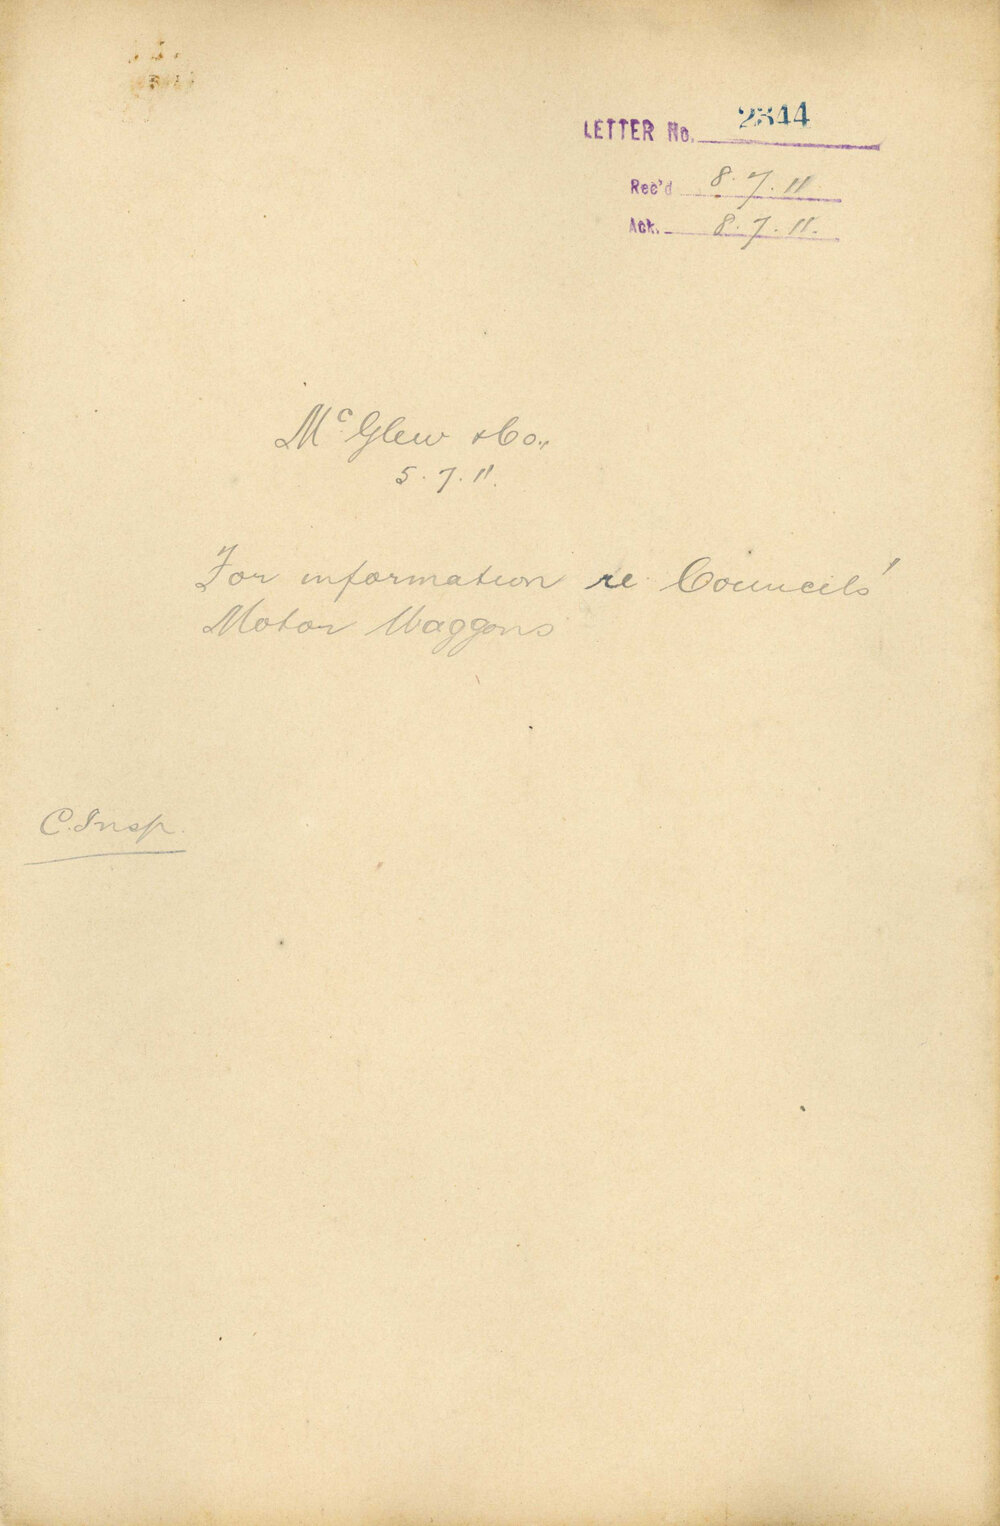 LETTER No. 2344
Rec'd 8.7.11
Ack. 8.7.11.
McGlew & Co.,
5.7.11.
For information re Councils'
Motor Waggons
C. Insp.